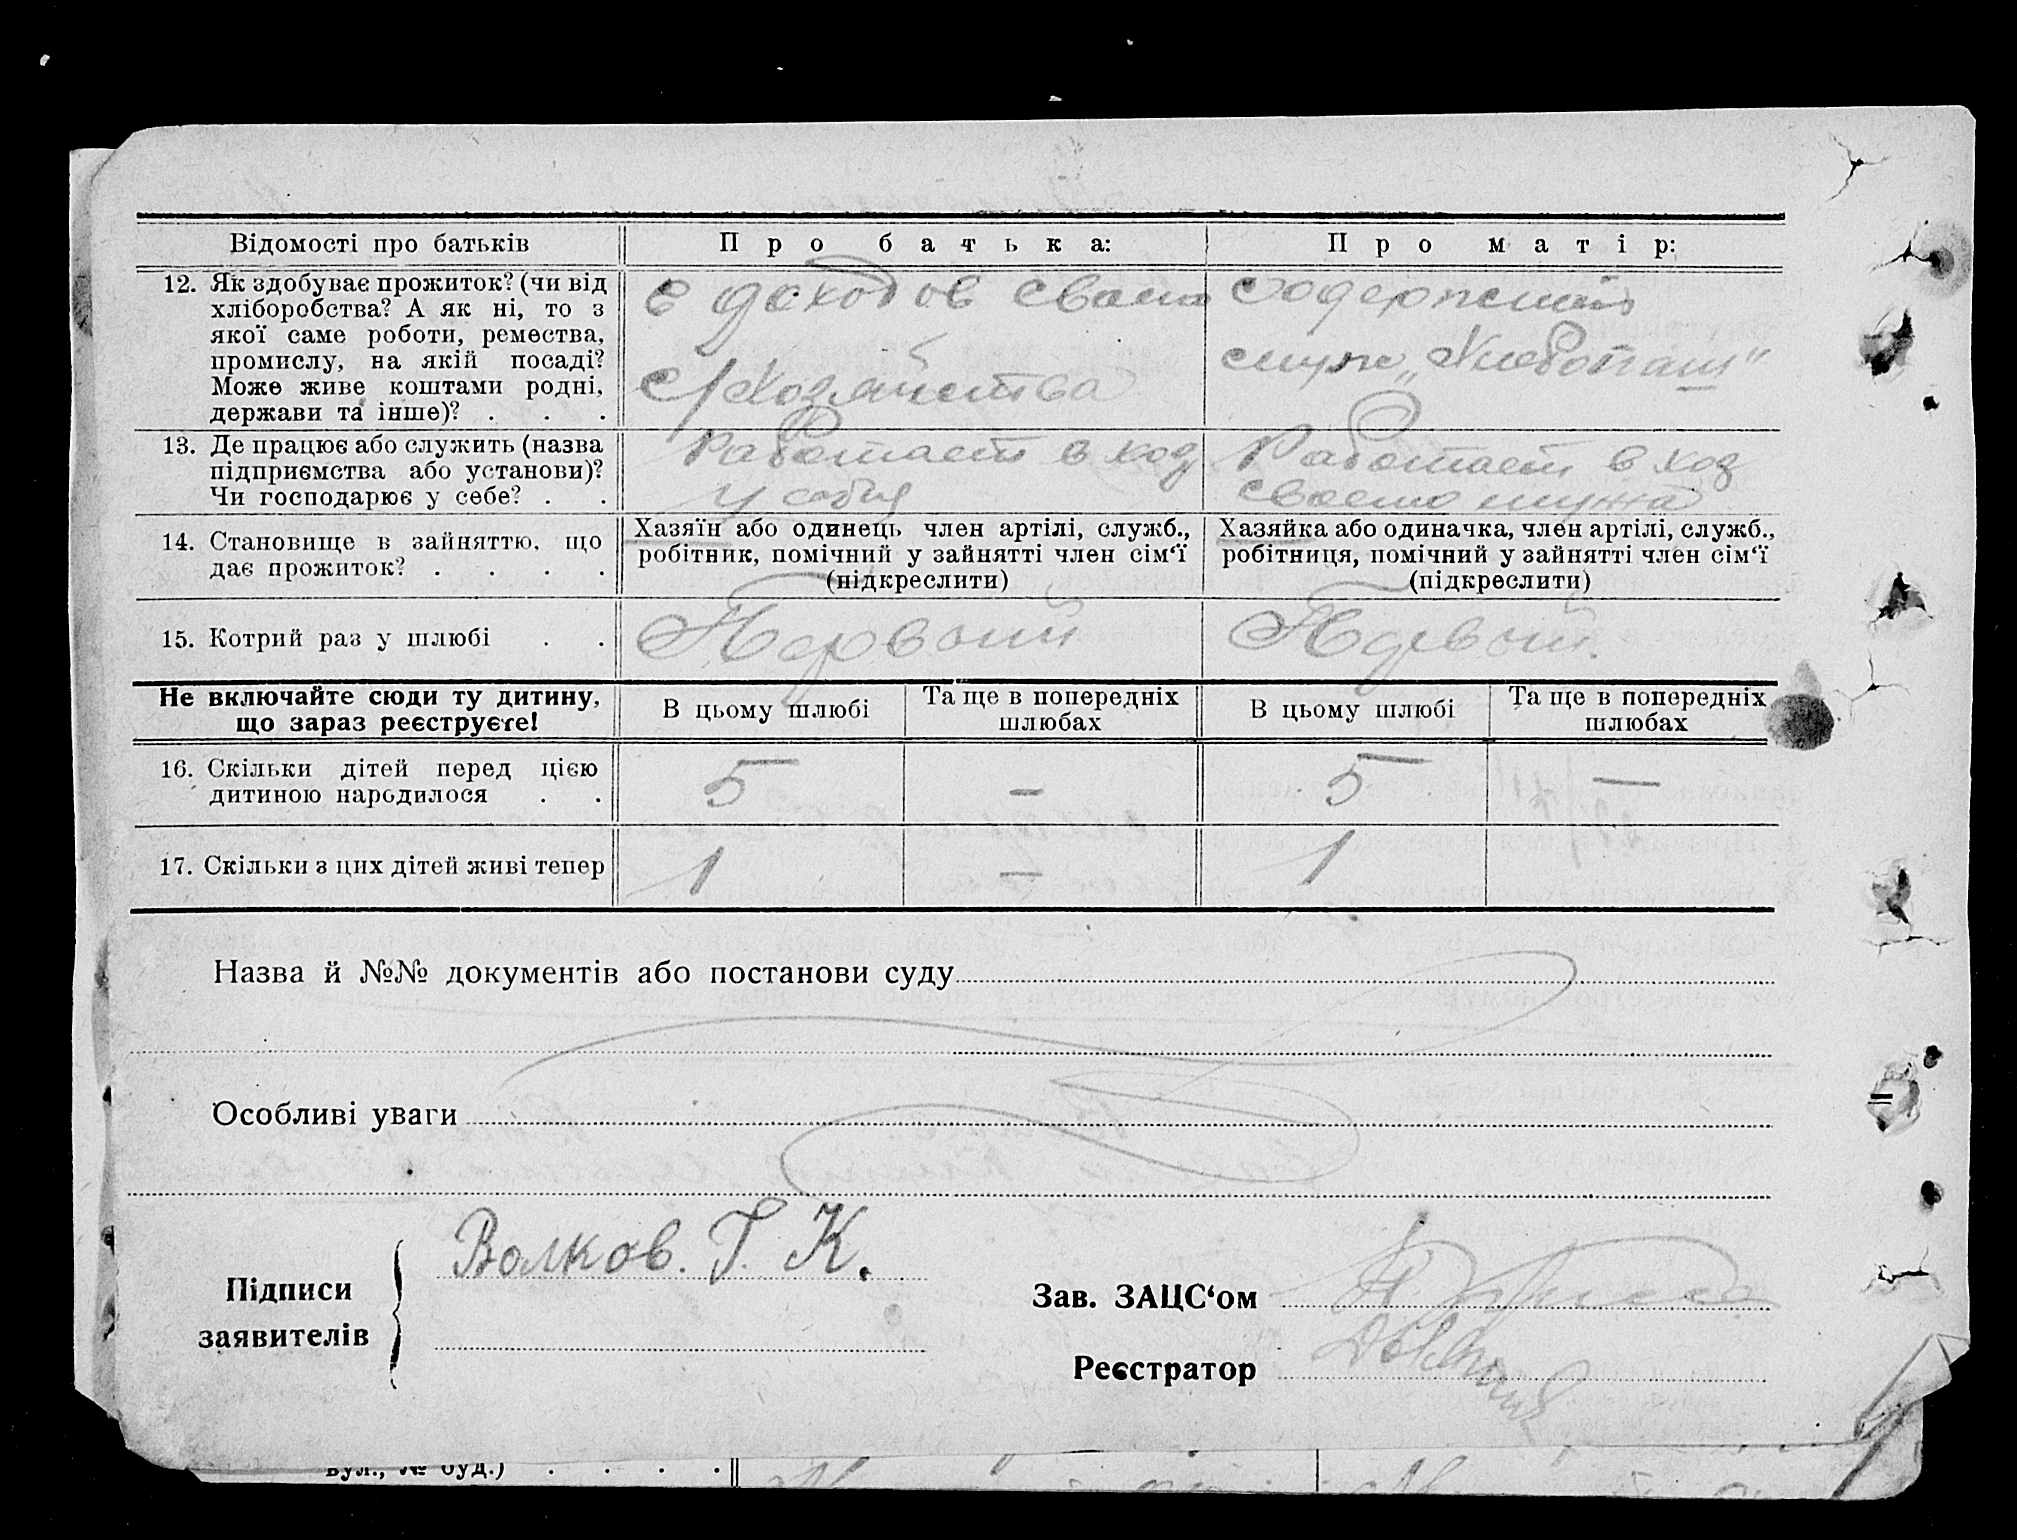 Відомості про батьків
Про батька:
Про матір:
12. Як здобуває прожиток? (чи від
хліборобства? А як ні, то з
якої саме роботи, ремества,
промислу, на якій посаді?
Може живе коштами родні,
держави та інше)? . . .
с доходов своего
с/хозяйства
содержит
муж „Хлебопаш"
13. Де працює або служить (назва
підприємства або установи)?
Чи господарює у себе? . .
Работает в хоз
у себя
Работает в хоз
своего мужа
14. Становище в зайняттю, що
дає прожиток? . . . .
Хазяїн або одинець член артілі, служб.,
робітник, помічний у зайнятті член сім'ї
(підкреслити)
Хазяйка або одиначка, член артілі, служб.,
робітниця, помічний у зайнятті член сім'ї
(підкреслити)
15. Котрий раз у шлюбі . .
Первый
Первый.
Не включайте сюди ту дитину,
що зараз реєструєте!
В цьому шлюбі
Та ще в попередніх
шлюбах
В цьому шлюбі
Та ще в попередніх
шлюбах
16. Скільки дітей перед цією
дитиною народилося . .
5 – 5 —
17. Скільки з цих дітей живі тепер
1 — 1
Назва й №№ документів або постанови суду
Особливі уваги
Підписи
заявителів
Волков. Г. К.
Зав. ЗАЦС'ом
Реєстратор
вул., № буд.) . . . .